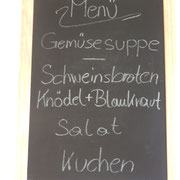 Menü
Gemüsesuppe
Schweinsbraten
Knödel+Blaukraut
Salat
Kuchen